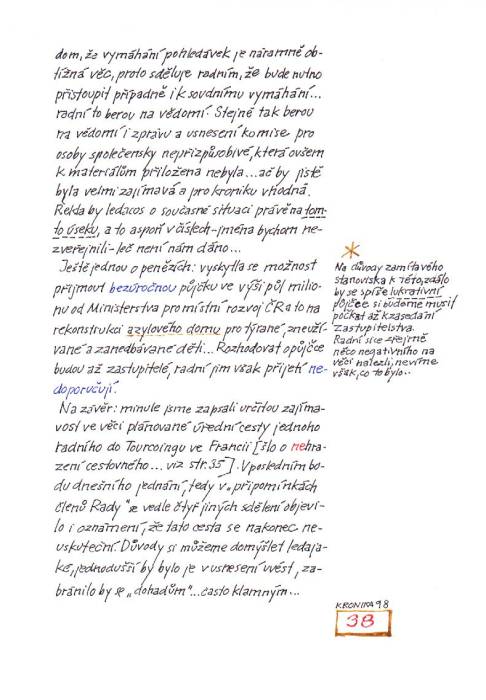 dom, že vymáhání pohledávek je náramně ob-
tížná věc, proto sděluje radním, že bude nutno
přistoupit případně i k soudnímu vymáhání...
radní to berou na vědomí. Stejně tak berou
na vědomí i zprávu a usnesení komise pro
osoby společensky nepřizpůsobivé, která ovšem
k materiálům přiložena nebyla... ač by jistě
byla velmi zajímavá a pro kroniku vhodná.
Řekla by ledacos o současné situaci právě na tom-
to úseku, a to aspoň v číslech - jména bychom ne-
zveřejnili - leč není nám dáno...
Ještě jednou o penězích: vyskytla se možnost
přijmout bezúročnou půjčku ve výši půl milio-
nu od Ministerstva pro místní rozvoj ČR a to na
rekonstrukci azylového domu pro týrané, zneuží-
vané a zanedbávané děti... Rozhodovat o půjčce
budou až zastupitelé, radní jim však přijetí ne-
doporučují.
Na závěr: minule jsme zapsali určitou zajíma-
vost ve věci plánované úřední cesty jednoho
radního do Tourcoingu ve Francii [šlo o nehra-
zení cestovného... viz str. 35]. V posledním bo-
du dnešního jednání, tedy v „připomínkách
členů Rady" se vedle čtyř jiných sdělení objevi-
lo i oznámení, že tato cesta se nakonec ne-
uskuteční. Důvody si můžeme domýšlet ledaja-
ké, jednodušší by bylo je v usnesení uvést, za-
bránilo by se „dohadům"... často klamným...
*
Na důvody zamítavého
stanoviska k této, zdálo
by se spíše lukrativní
půjčce si budeme muset
počkat až k zasedání
zastupitelstva.
Radní sice zřejmě
něco negativního na
věci nalezli, nevíme
však, co to bylo..
KRONIKA 98
38